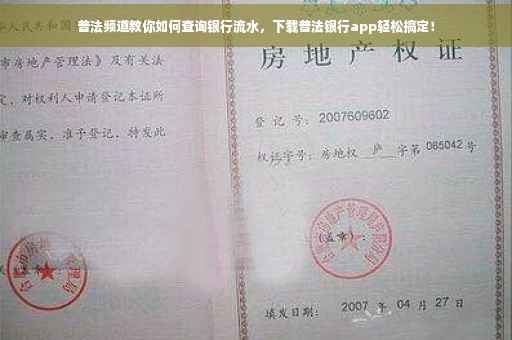 普法频道教你如何查询银行流水，下载普法银行app轻松搞定！
华人民共和国
市房地产管理法》及有关法
定，对权利人申请登记本证所
审查属实，准予登记，特发此
房地产权证
登记号：2007609602
权证字号：房地权 庐 字第 085042 号
（盖章）：
填发日期： 2007 年 04 月 27 日